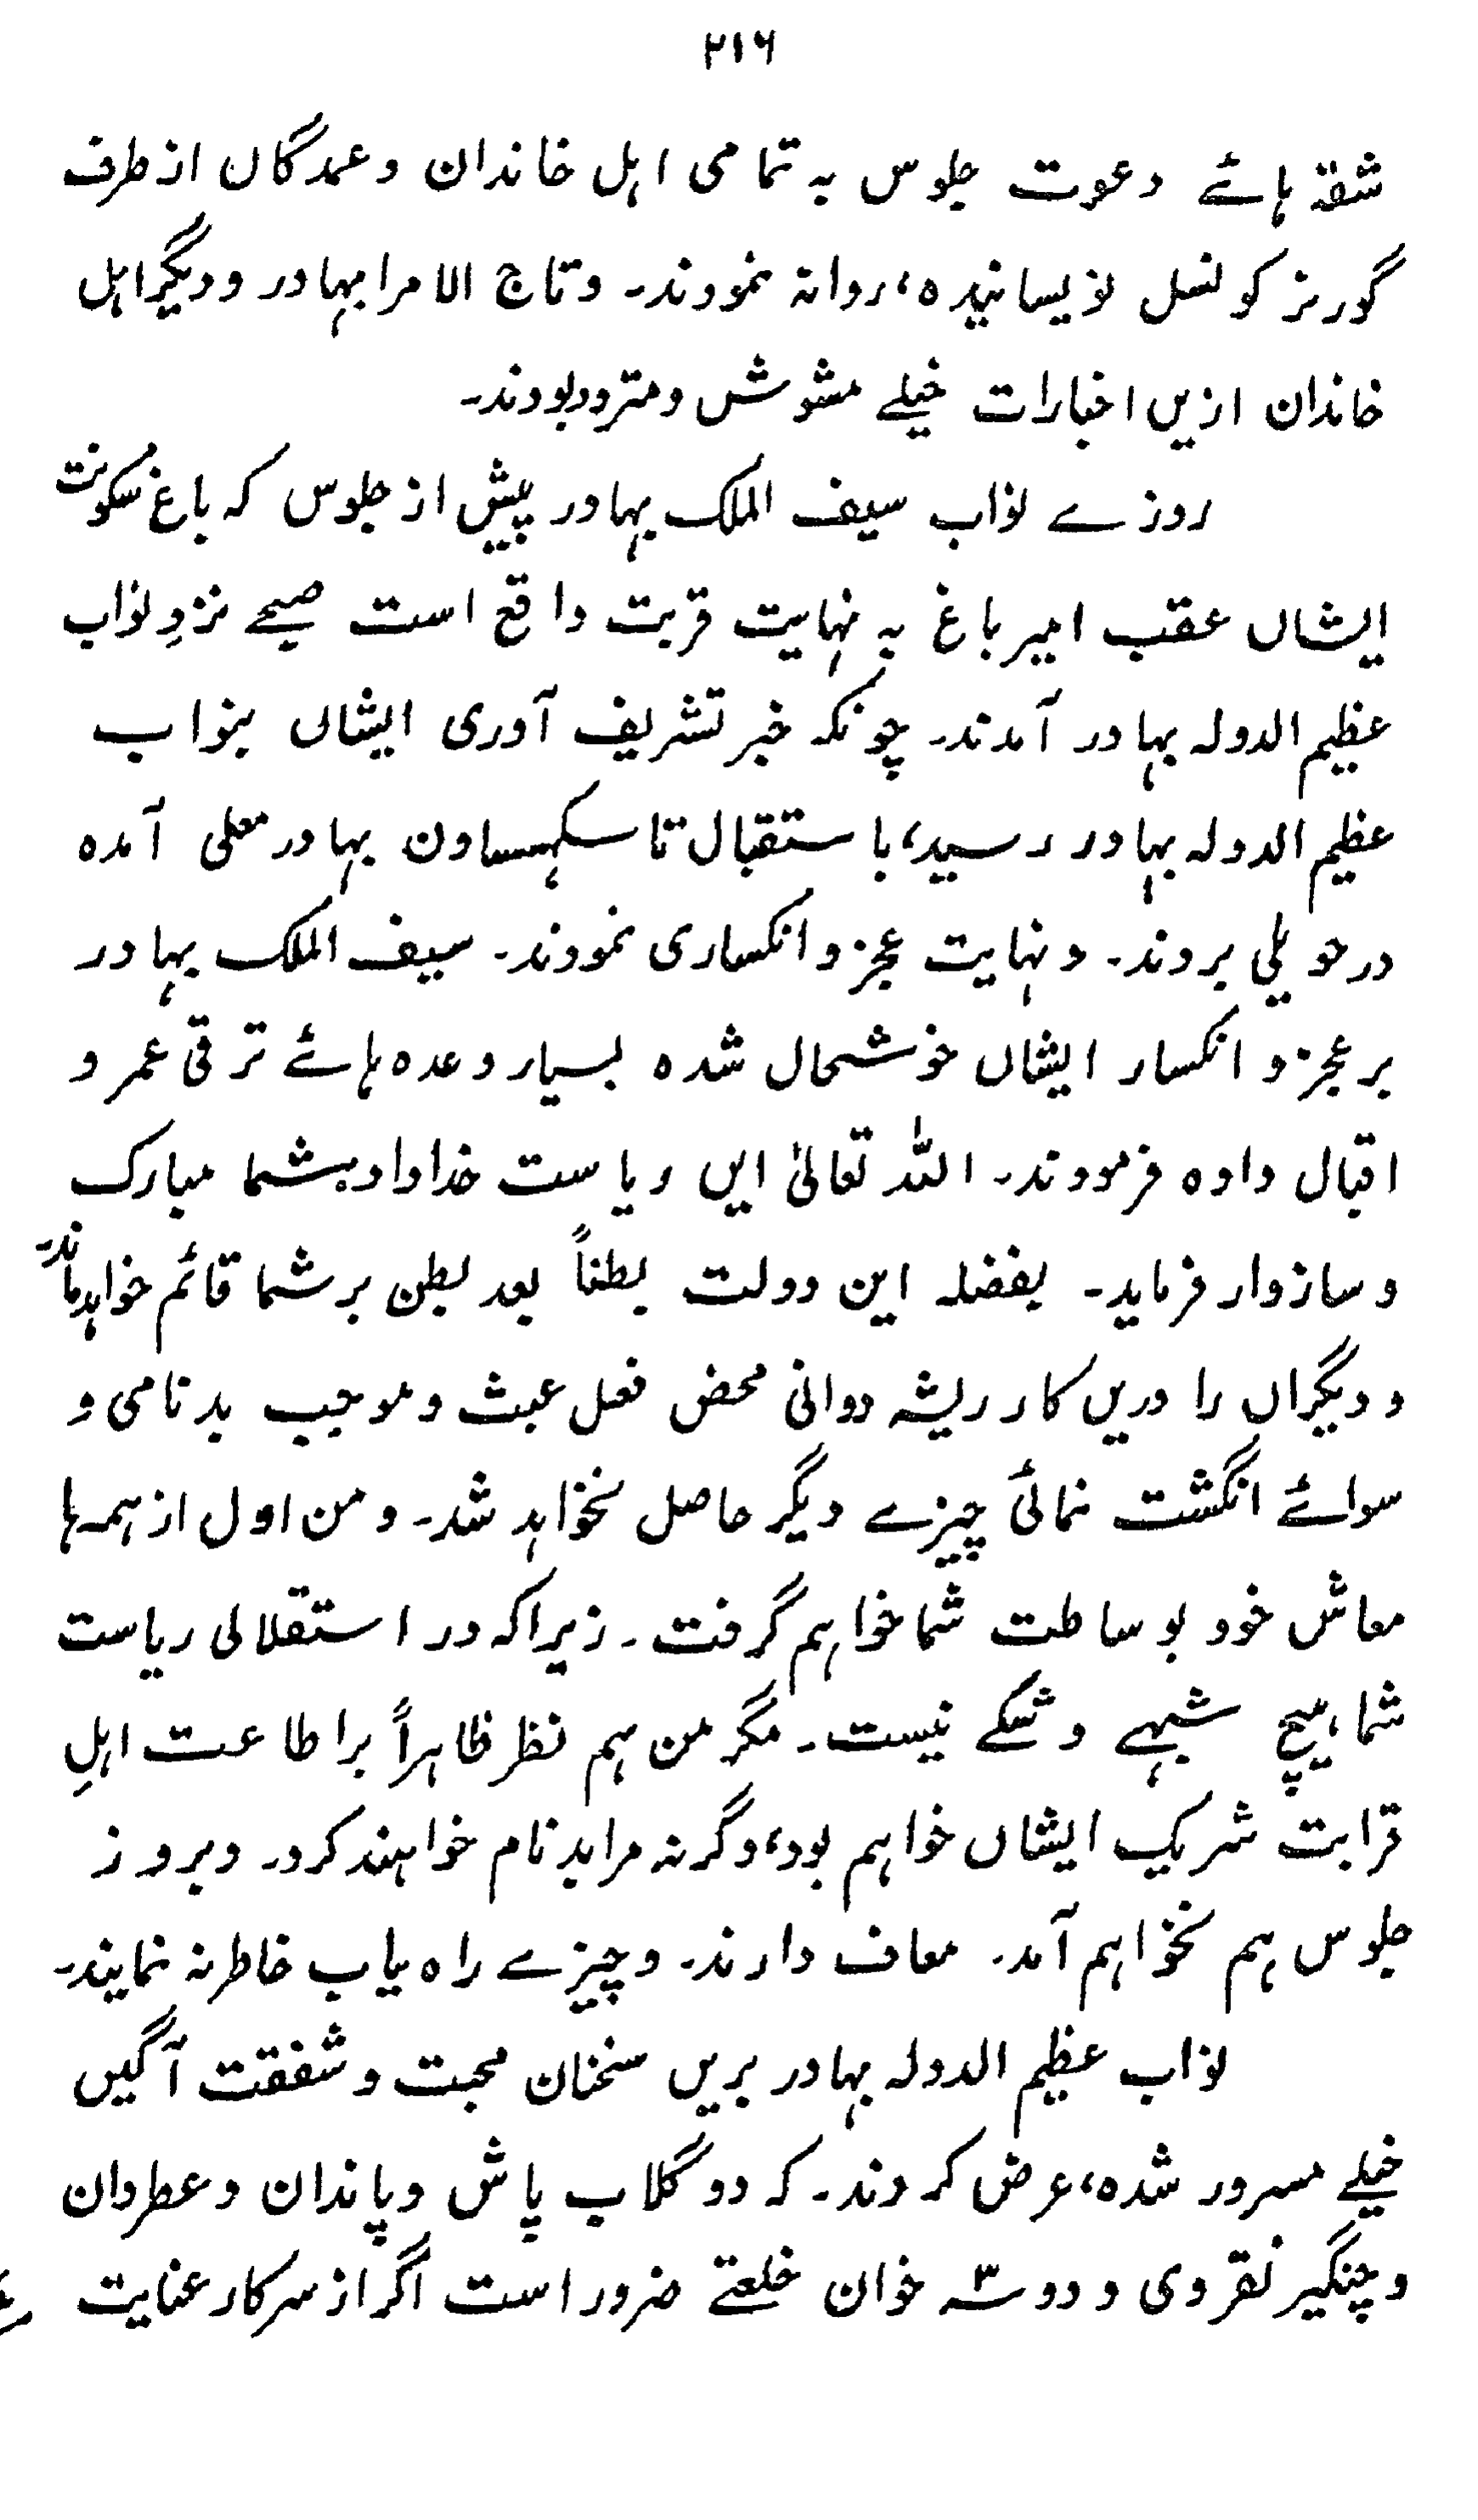 ۲۱۶
شقہ ہائے دعوت جلوس بہ تمامی اہل خاندان و عمدگان از طرف
گورنر کونسل نویسانیدہ، روانہ نمودند۔ و تاج الامرا بہادر و دیگر اہل
خاندان ازیں اخبارات خیلے مشوش و متردد بودند۔
روزے نواب سیف الملک بہادر پیش از جلوس کہ باغ سکونت
ایشاں عقب امیر باغ بہ نہایت قربت واقع است صبحے نزدِ نواب
عظیم الدولہ بہادر آمدند۔ چونکہ خبر تشریف آوری ایشاں بنواب
عظیم الدولہ بہادر رسید، باستقبال تا سکہساون بہادر محلی آمدہ
در حویلی بردند۔ و نہایت عجز و انکساری نمودند۔ سیف الملک بہادر
بر عجز و انکسار ایشاں خوشحال شدہ بسیار وعدہ ہائے ترقی عمر و
اقبال دادہ فرمودند۔ اللہ تعالیٰ ایں ریاست خداداد بشما مبارک
و سازوار فرماید۔ بفضلہ این دولت بطناً بعد بطن بر شما قائم خواہد ماند۔
و دیگراں را دریں کار ریشہ دوانی محض فعل عبث و موجب بدنامی و
سوائے انگشت نمائی چیزے دیگر حاصل نخواہد شد۔ و من اول از ہمہ ہا
معاش خود بوساطت شما خواہم گرفت۔ زیراکہ در استقلالی ریاست
شما ہیچ شبہے و شکے نیست۔ مگر من ہم نظر ظاہراً بر اطاعت اہلِ
قرابت شریک ایشاں خواہم بود، وگرنہ مرا بدنام خواہند کرد۔ و بروز
جلوس ہم نخواہم آمد۔ معاف دارند۔ و چیزے راہ یاب خاطر نہ نمایند۔
نواب عظیم الدولہ بہادر بریں سخنان محبت و شفقت آگیں
خیلے مسرور شدہ، عرض کردند۔ کہ دو گلاب پاش و پاندان و عطردان
و چنگیر نقروی و دو سہ خوان خلعتے ضرور است اگر از سرکار عنایت